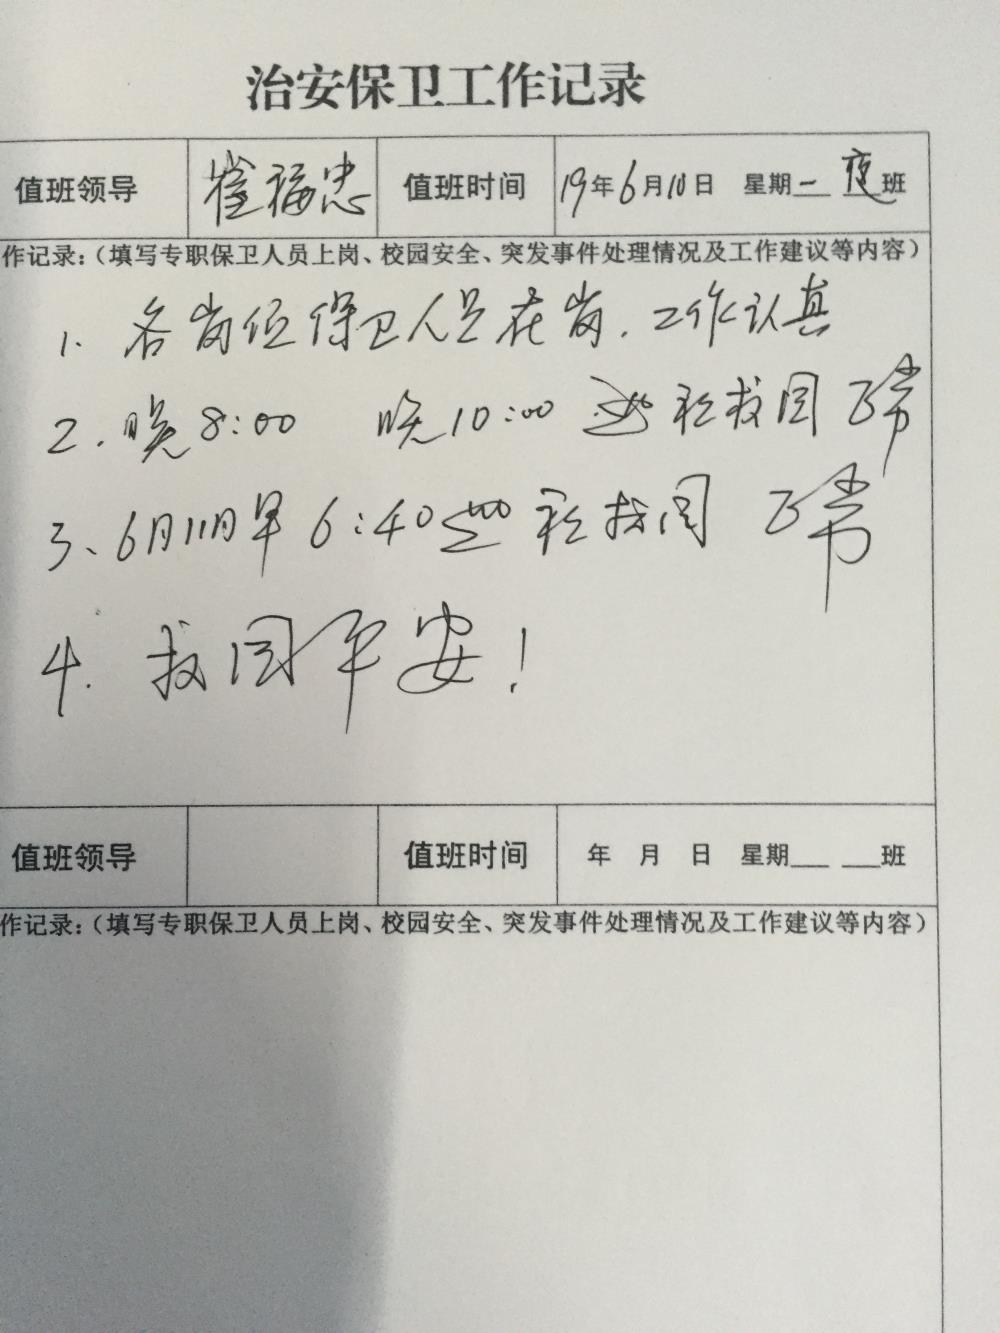 治安保卫工作记录
值班领导 崔福忠 值班时间 19年6月10日 星期一 夜班
作记录:(填写专职保卫人员上岗、校园安全、突发事件处理情况及工作建议等内容)
1. 各岗位保卫人员在岗.工作认真
2. 晚8:00 晚10:00 巡视校园 正常
3、6月11日早6:40巡视校园 正常
4. 校园平安!
值班领导 值班时间 年 月 日 星期___ ___班
作记录:(填写专职保卫人员上岗、校园安全、突发事件处理情况及工作建议等内容)